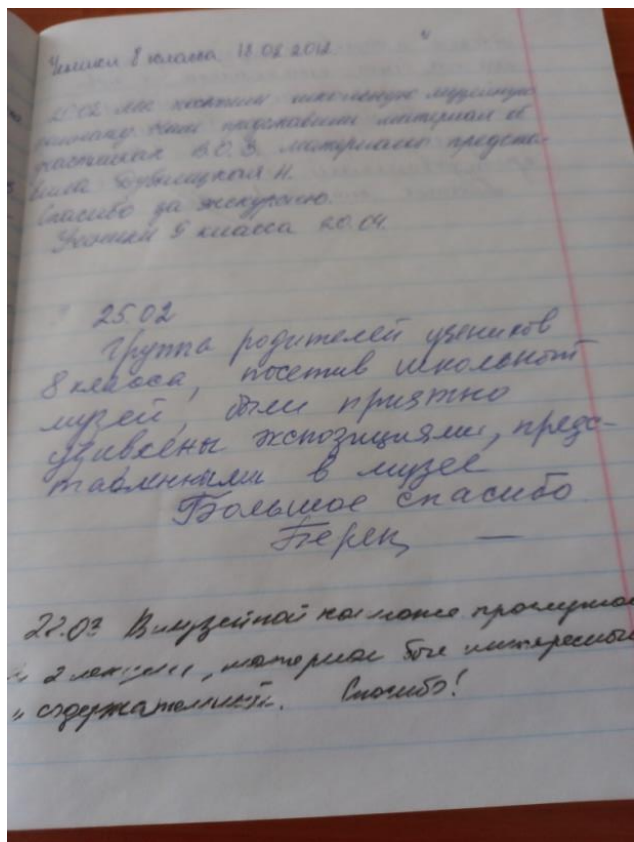 Ученики 8 класса 18.02.2012
20.02 мы посетили школьную музейную
комнату. Были представлены материал об
участниках В.О.В. материалы предста-
вила Н.
Спасибо за экскурсию.
Ученики 9 класса 20.04.
25.02
Группа родителей учеников
8 класса, посетив школьной
музей, были приятно
удивлены экспозициями, предс-
тавленными в музее
Большое спасибо
Перец —
22.03 В музейной комнате прослушал
и 2 лекции, материал был интересный
и содержательный. Спасибо!